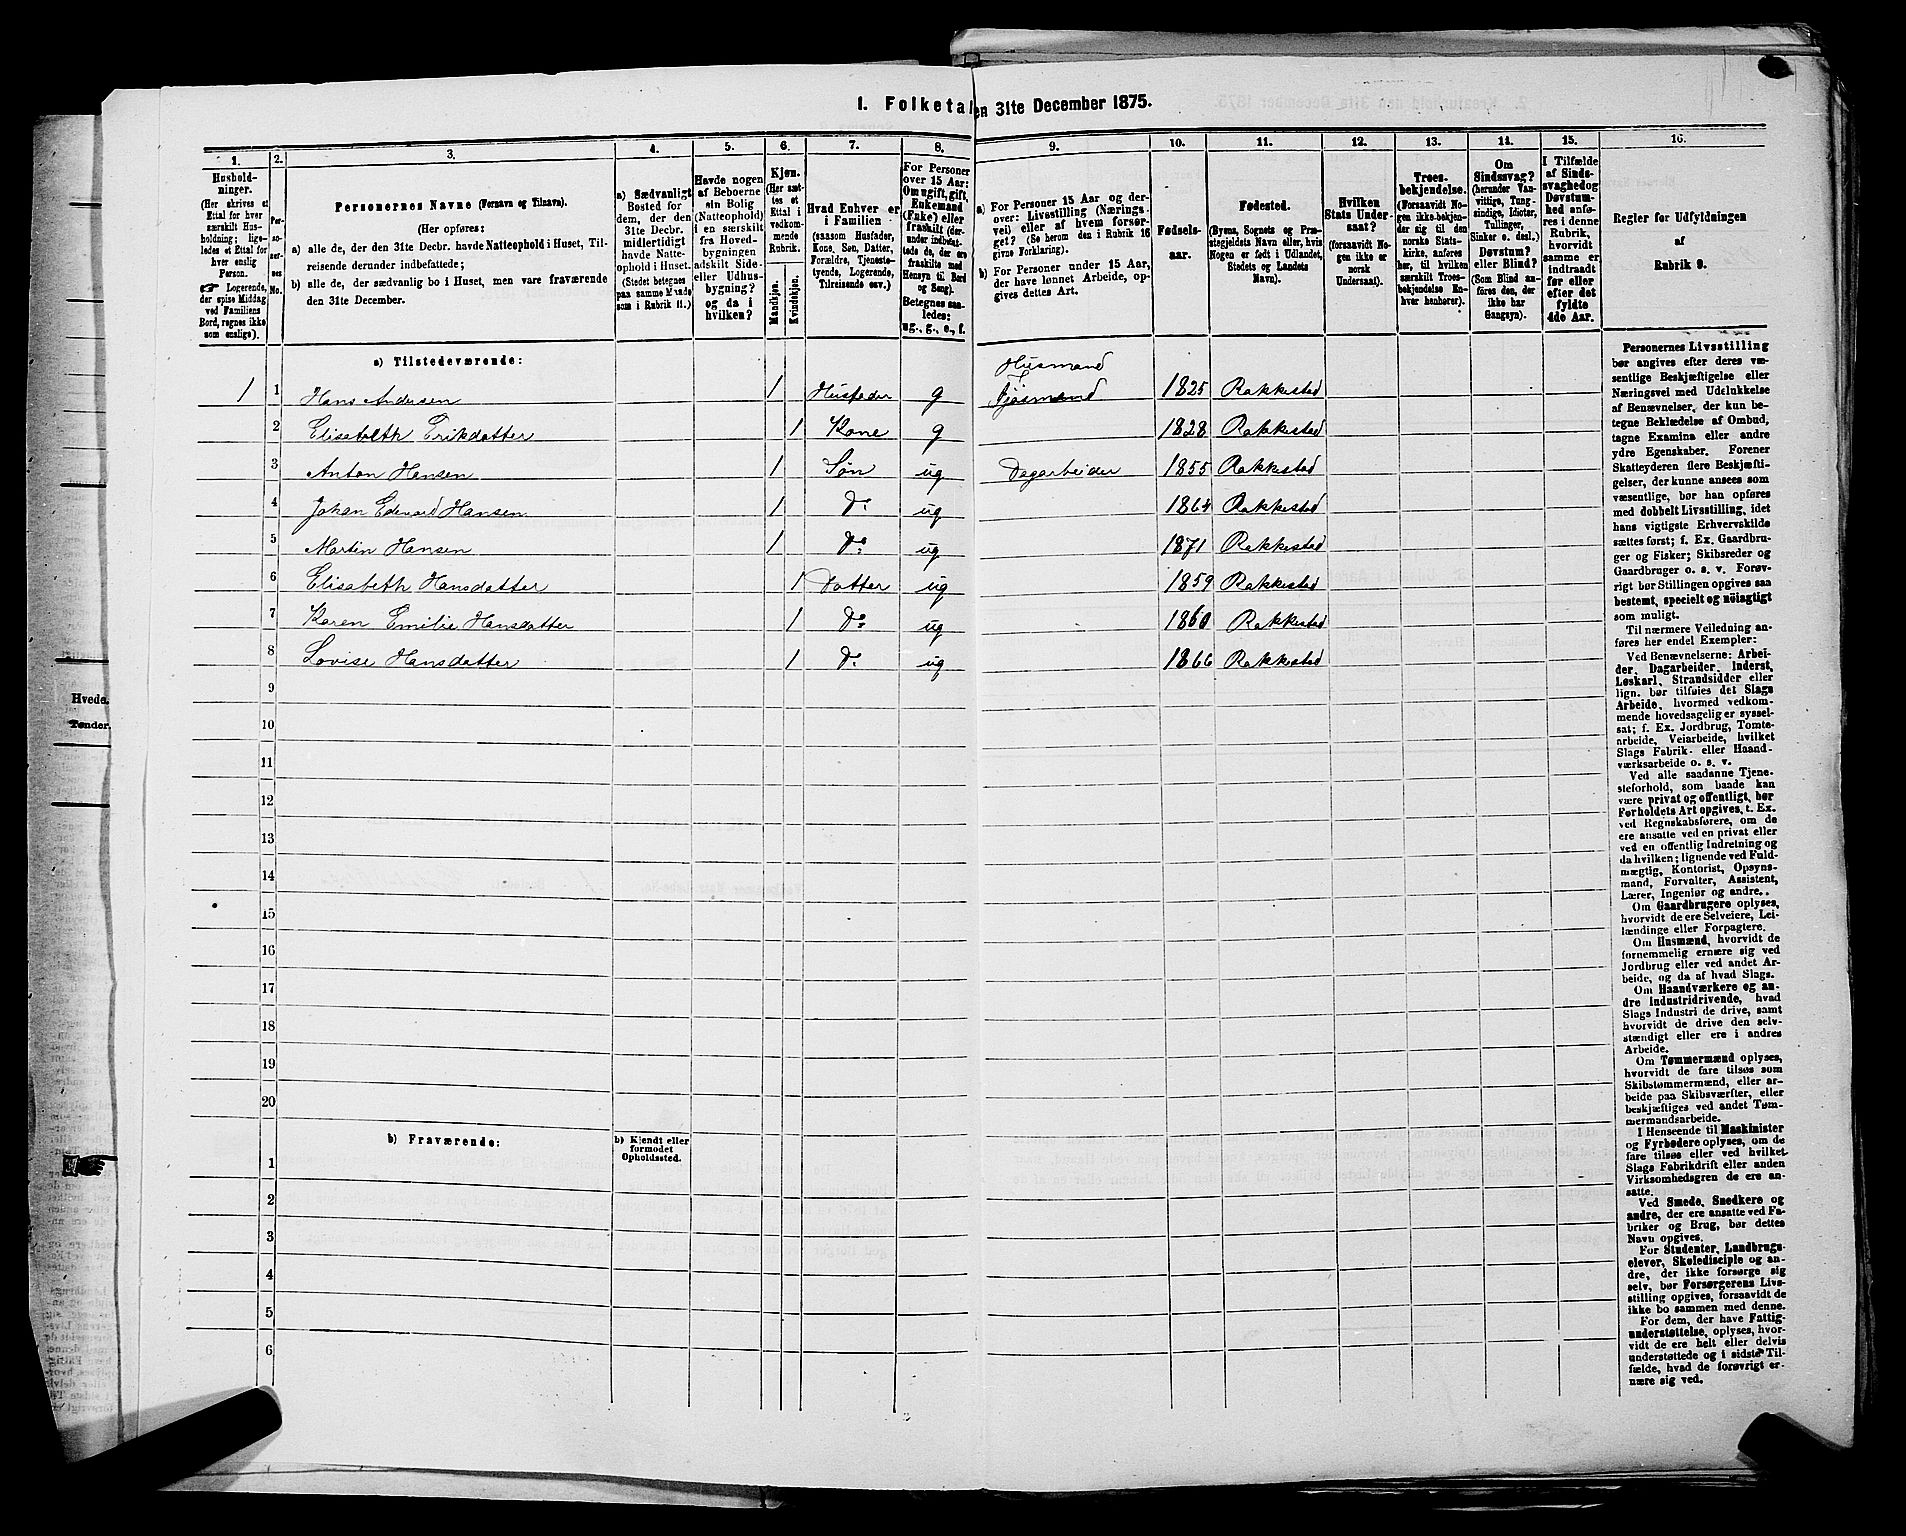 1. Folketal
en 31te December 1875.
1. 2. 3. 4. 5. 6. 7. 8. 9. 10. 11. 12. 13. 14. 15. 16.
Hushold-
ninger.
(Her skrives et
Ettal for hver
særskilt Hus-
holdning; lige-
ledes et Ettal for
hver enslig
Person.
☞ Logerende,
der spise Middag
ved Familiens
Bord, regnes ikke
som enslige).
Per-
soner-
nes
No.
Personernes Navne (Fornavn og Tilnavn).
(Her opføres:
a) alle de, der den 31te Decbr. havde Natteophold i Huset, Til-
reisende derunder indbefattede;
b) alle de, der sædvanlig bo i Huset, men vare fraværende
den 31te December.
a) Sædvanligt
Bosted for
dem, der den
31te Decbr.
midlertidigt
havde Natte-
ophold i Huset.
(Stedet betegnes
paa samme Maade
som i Rubrik 11.)
Havde nogen
af Beboerne
sin Bolig
(Natteophold)
i en særskilt
fra Hoved-
bygningen
adskilt Side-
eller Udhus-
bygning?
og da i
hvilken?
Kjøn.
(Her sæt-
tes et
Ettal i
vedkom-
mende
Rubrik.
Mandkjøn.
Kvindekjøn.
Hvad Enhver er
i Familien
(saasom Husfader,
Kone, Søn, Datter,
Forældre, Tjeneste-
tyende, Logerende,
Tilreisende osv.)
For Personer
over 15 Aar:
Om ugift, gift,
Enkemand
(Enke) eller
fraskilt (der-
under indbefat-
tede de, der ere
fraskilte med
Hensyn til Bord
og Seng).
Betegnes saa-
ledes:
ug., g., e., f.
a) For Personer 15 Aar og der-
over: Livsstilling (Nærings-
vei) eller af hvem forsør-
get? (Se herom den i Rubrik 16
givne Forklaring).
b) For Personer under 15 Aar,
der have lønnet Arbeide, op-
gives dettes Art.
Fødsels-
aar.
Fødested.
(Byens, Sognets og Præ-
stegjeldets Navn eller, hvis
Nogen er født i Udlandet,
Stedets og Landets
Navn).
Hvilken
Stats Under-
saat?
(forsaavidt No-
gen ikke er
norsk
Undersaat).
Troes-
bekjendelse.
(Forsaavidt No-
gen ikke bekjen-
der sig til den
norske Stats-
kirke, anføres
her, til hvilken
særskilt Troes-
bekjendelse En-
hver henhører).
Om
Sindssvag?
(herunder Van-
vittige, Tung-
sindige, Idioter,
Tullinger,
Sinker o. desl.)
Døvstum?
eller Blind?
(Som Blind an-
føres den, der
ikke har
Gangsyn).
I Tilfælde
af Sinds-
svaghed og
Døvstum-
hed anfø-
res i denne
Rubrik,
hvorvidt
samme er
indtraadt
før eller
efter det
fyldte
4de Aar.
Regler for Udfyldningen
af
Rubrik 9.
a) Tilstedeværende:
Husmand
1 1 Hans Andersen 1 Husfader g Fjøsmand 1825 Rakkestad
2 Elisabeth Erikdatter 1 Kone g 1828 Rakkestad
3 Anton Hansen 1 Søn ug Dagarbeider 1855 Rakkestad
4 Johan Edevard Hansen 1 Do ug 1864 Rakkestad
5 Martin Hansen 1 Do ug 1871 Rakkestad
6 Elisabeth Hansdatter 1 Datter ug 1859 Rakkestad
7 Karen Emilie Hansdatter 1 Do ug 1860 Rakkestad
8 Lovise Hansdatter 1 Do ug 1866 Rakkestad
9
10
11
12
13
14
15
16
17
18
19
20
b) Fraværende:
b) Kjendt eller
formodet
Opholdssted.
1
2
3
4
5
6
Personernes Livsstilling
bør angives efter deres væ-
sentlige Beskjæftigelse eller
Næringsvei med Udelukkelse
af Benævnelser, der kun be-
tegne Beklædelse af Ombud,
tagne Examina eller andre
ydre Egenskaber. Forener
Skatteyderen flere Beskjæfti-
gelser, der kunne ansees som
væsentlige, bør han opføres
med dobbelt Livsstilling, idet
hans vigtigste Erhvervskilde
sættes først; f. Ex. Gaardbru-
ger og Fisker; Skibsreder og
Gaardbruger o. s. v. Forøv-
rigt bør Stillingen opgives saa
bestemt, specielt og nøiagtigt
som muligt.
Til nærmere Veiledning an-
føres her endel Exempler:
Ved Benævnelserne: Arbei-
der, Dagarbeider, Inderst,
Løskarl, Strandsidder eller
lign. bør tilføies det Slags
Arbeide, hvormed vedkom-
mende hovedsagelig er syssel-
sat; f. Ex. Jordbrug, Tomte-
arbeide, Veiarbeide, hvilket
Slags Fabrik- eller Haand-
værksarbeide o. s. v.
Ved alle saadanne Tjene-
steforhold, som baade kan
være privat og offentligt, bør
Forholdets Art opgives, t. Ex.
ved Regnskabsførere, om de
ere ansatte ved en privat eller
ved en offentlig Indretning og
da hvilken; lignende ved Fuld-
mægtig, Kontorist, Opsyns-
mand, Forvalter, Assistent,
Lærer, Ingeniør og andre.
Om Gaardbrugere oplyses,
hvorvidt de ere Selveiere, Lei-
lændinge eller Forpagtere.
Om Husmænd, hvorvidt de
fornemmelig ernære sig ved
Jordbrug eller ved andet Ar-
beide, og da af hvad Slags.
Om Haandværkere og an-
dre Industridrivende, hvad
Slags Industri de drive, samt
hvorvidt de drive den selv-
stændigt eller ere i andres
Arbeide.
Om Tømmermænd oplyses,
hvorvidt de fare tilsøs som
Skibstømmermænd, eller ar-
beide paa Skibsværfter, eller
beskjæftiges ved andet Tøm-
mermandsarbeide.
I Henseende til Maskinister
og Fyrbødere oplyses, om de
fare tilsøs eller ved hvilket
Slags Fabrikdrift eller anden
Virksomhedsgren de ere an-
satte.
Ved Smede, Snedkere og
andre, der ere ansatte ved Fa-
briker og Brug, bør dettes
Navn opgives.
For Studenter, Landbrugs-
elever, Skoledisciple og an-
dre, der ikke forsørge sig
selv, bør Forsørgerens Livs-
stilling opgives, forsaavidt de
ikke bo sammen med denne.
For dem, der have Fattig-
understøttelse, oplyses, hvor-
vidt de ere helt eller delvis
understøttede og i sidste Til-
fælde, hvad de forøvrigt er-
nære sig ved.
Hvede.
Tønder.